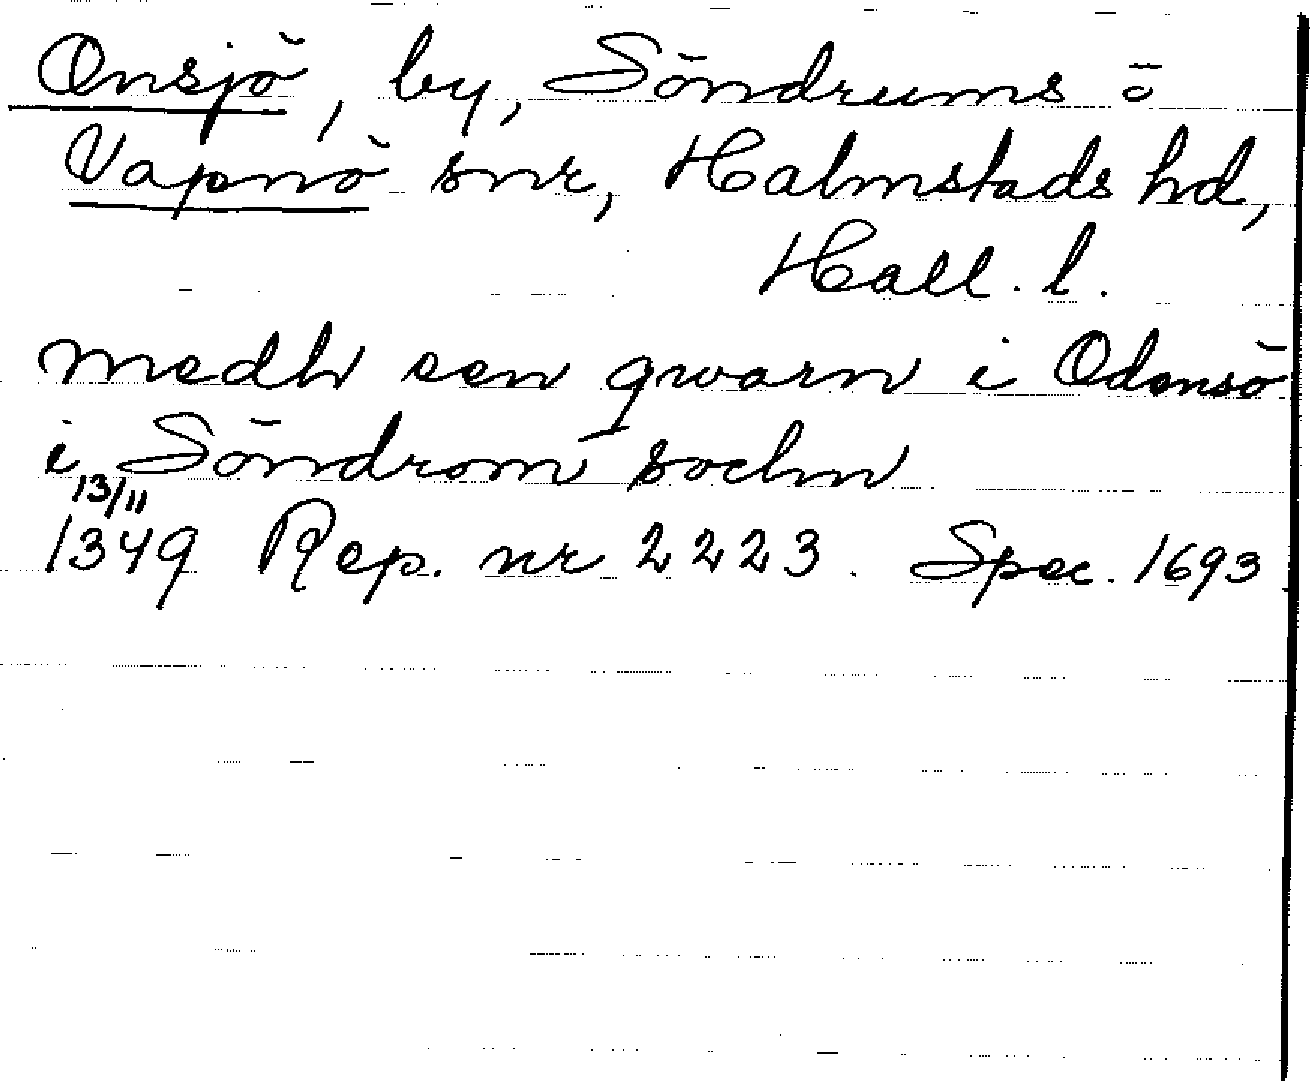 Onsjö, by, Söndrums o
Vapnö snr, Halmstads hd,
Hall. l.
medh een qwarn i Odensö
i Söndrom sochn
13/11
1349 Rep. nr 2223. Spec. 1693